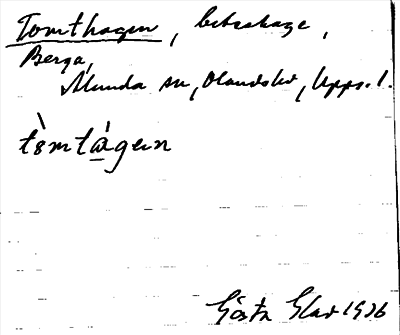 Tomthagen, beteshage,
Berga,
Munda sn, Olandshd, Upps. l.
tòmtágen
Gösta Glad 1926